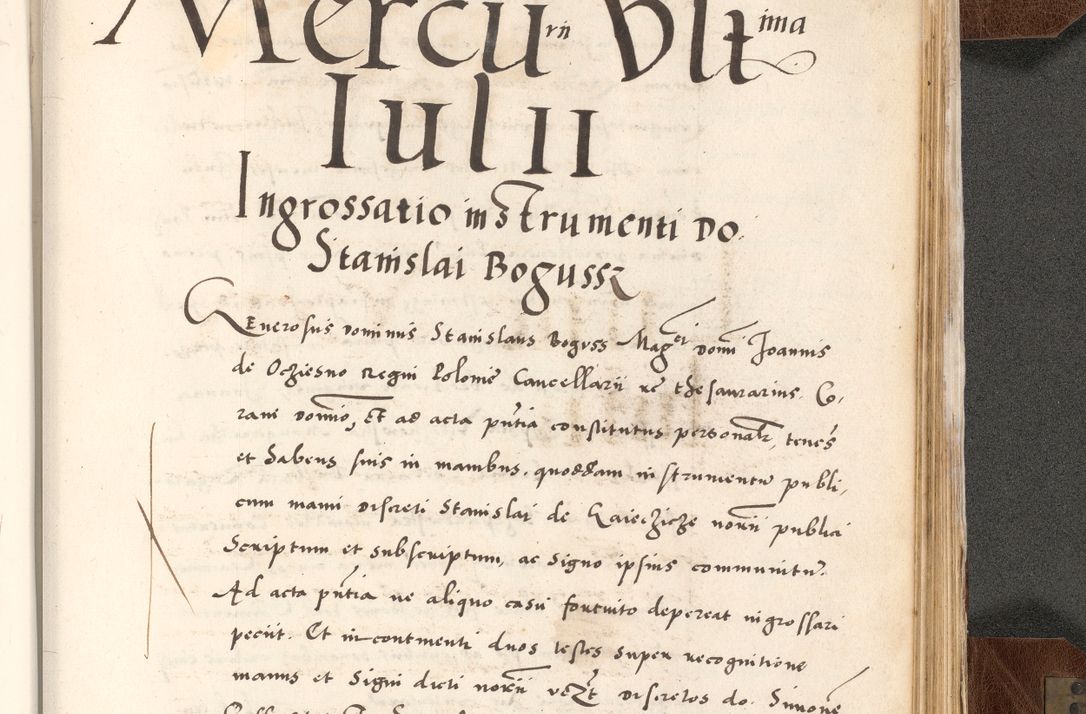 Mercurii Ultima
Iulii
Ingrossatio instrumenti Do.
Stanislai Bogussz
Generosus dominus Stanislaus Boguss Magci domi Joannis
de Ocziesno Regni Polonie Cancellarii thesaurarius. Co,
ram domino, Et ad acta pntia constitutus personalr, tenes
et habens suis in manibus, quoddam instrumentu publi,
cum manu discreti Stanislai de norii publici
Scriptum et subscriptum, ac Signo ipsius communitu.
Ad acta pntia ne aliquo casu fortuito depereat ingrossari
peciit. Et in continenti duos testes super recognitione
manus et Signi dicti norii vezt discretos do. Simone